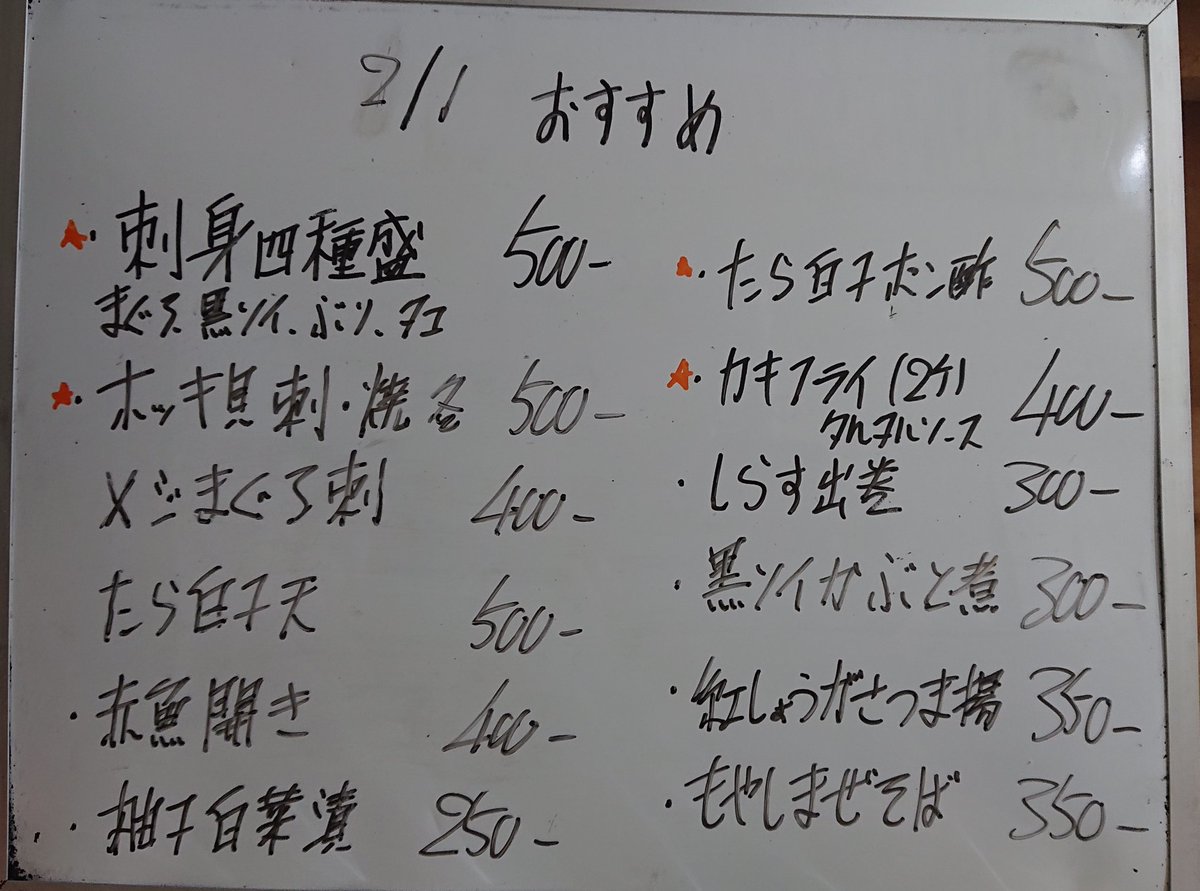 2/1 おすすめ
・刺身四種盛 500-
まぐろ、黒ソイ、ぶり、
・ホッキ貝刺・焼き 500-
メジまぐろ刺 400-
たら白子天 500-
・赤魚開き 400-
・白菜漬 250-
・たら白子ポン酢 500-
・カキフライ(2ケ) 400-
タルタルソース
・しらす出巻 300-
・黒ソイかぶと煮 300-
・紅しょうがさつま揚 350-
・もやしまぜそば 350-